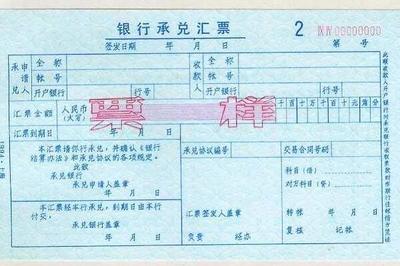 银行承兑汇票 2 IXIV00000000
签发日期 年 月 日 第 号
承兑申请人 全称 收款人 全称
帐号 帐号
开户银行 行号 开户银行 行号
汇票金额 人民币(大写) 千百十万千百十元角分
票样
汇票到期日 年 月 日
本汇票请你行承兑,并确认《银行结算办法》和承兑协议的各项规定。
此致
承兑银行
承兑申请人盖章
年 月 日
承兑协议编号 交易合同号码
科目(借)
对方科目(贷)
本汇票经本行承兑,到期日由本行付交。
承兑银行盖章
年 月 日
汇票签发人盖章
负责 经办
转帐 年 月 日
复核 记帐
1994·上海